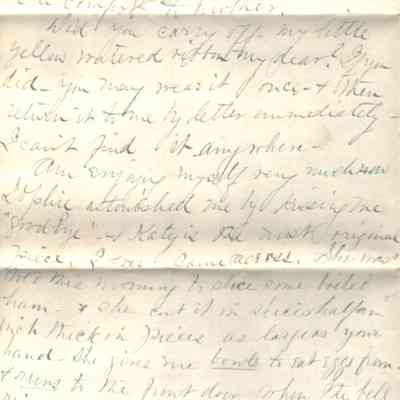 Did you carry off my little
yellow watered ribbon my dear? If you
did - you may wear it once - & then
return it to me by letter immediately -
I can't find it anywhere -
Am enjoying myself very much
Sophie astonished me by kissing me
"Goodbye" - & Katy is the most original
piece I ever came across. She was
told this morning to slice some boiled
ham - & she cut it in slices half an
inch thick in pieces as large as your
hand - She gives me bowls to eat eggs from -
& runs to the front door when the bell